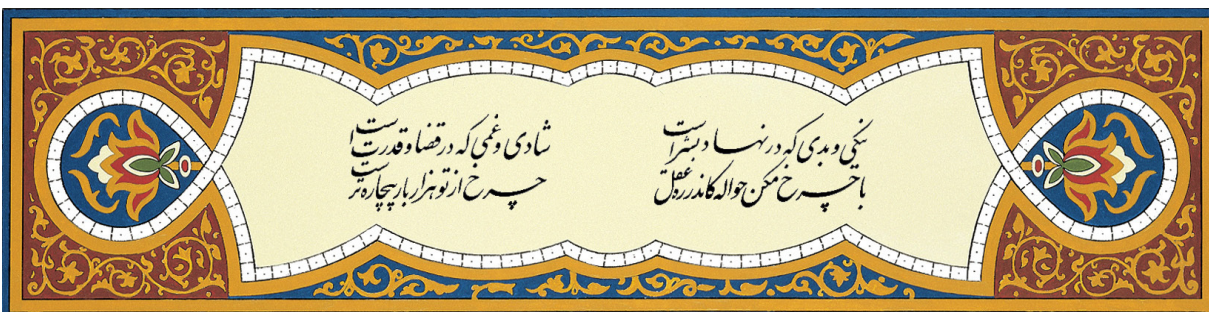 نیکی و بدی که در نهاد بشر است
شادی و غمی که در قضا و قدر است
با چرخ مکن حواله کاندر ره عقل
چرخ از تو هزار بار بیچاره‌تر است